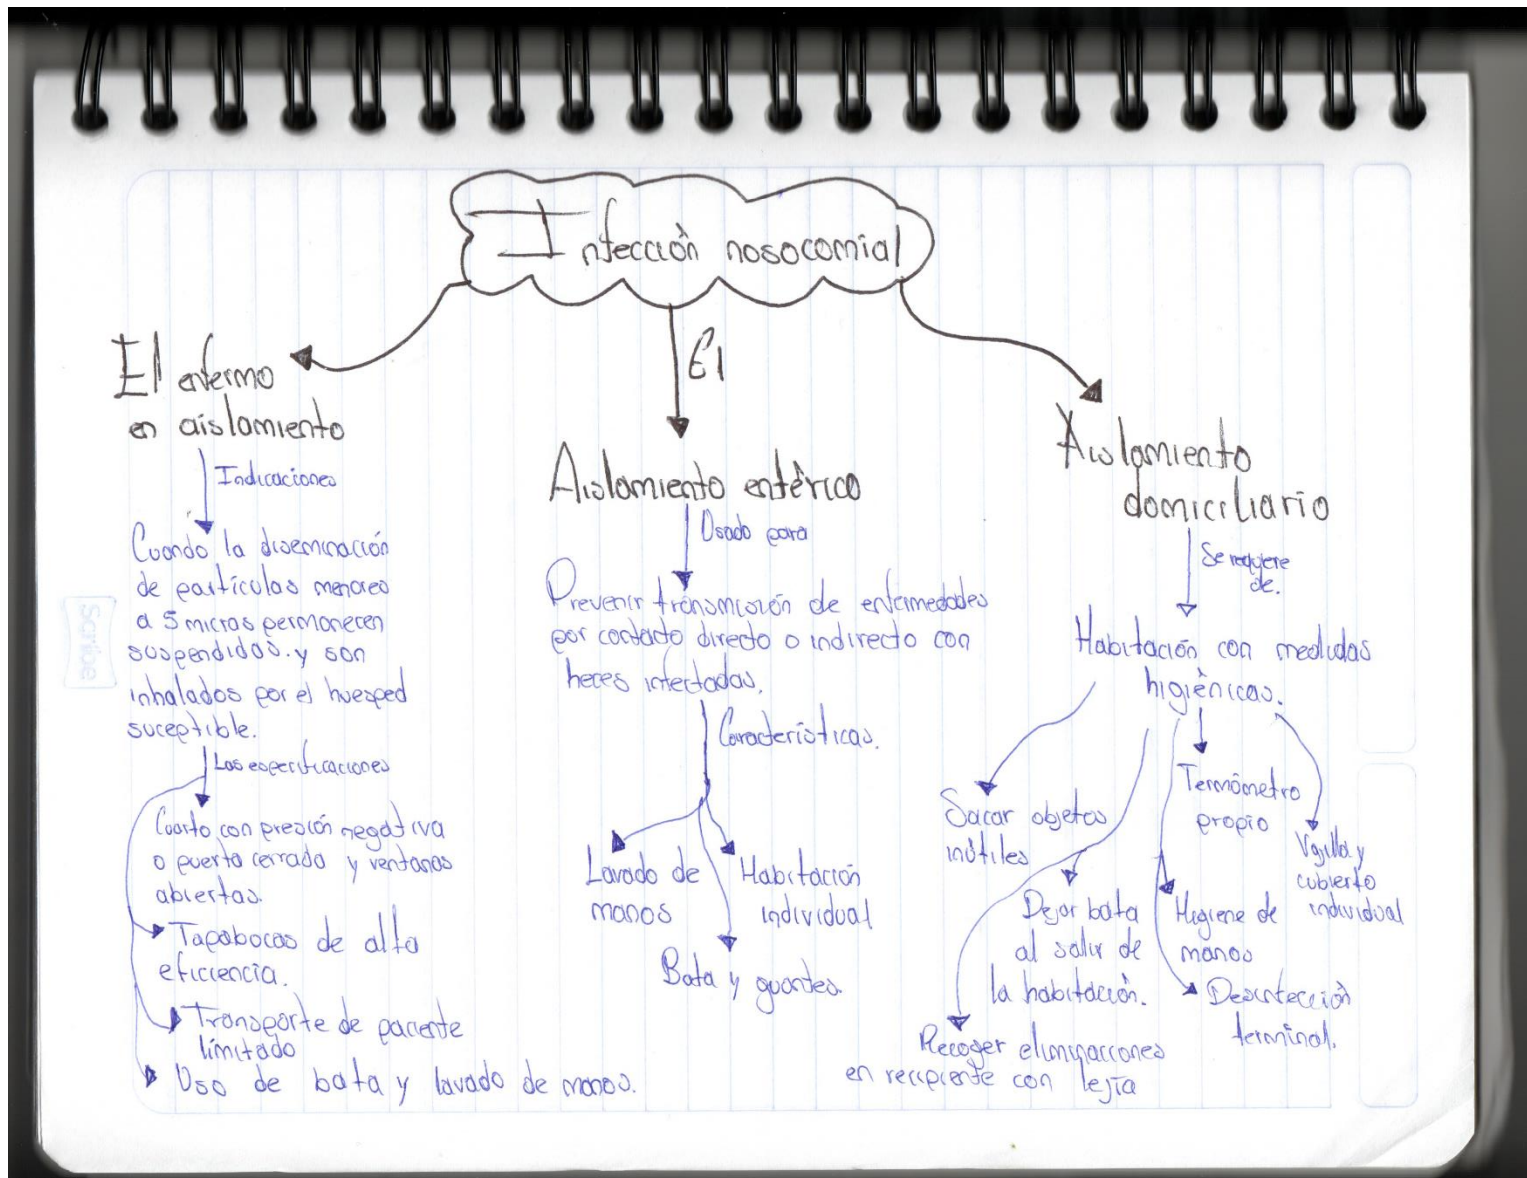 Infección nosocomial
El enfermo
en aislamiento
Indicaciones
Cuando la diseminación
de partículas menores
a 5 micras permanecen
suspendidas. y son
inhalados por el huesped
suceptible.
Las especificaciones
Cuarto con presión negativa
o puerta cerrada y ventanas
abiertas.
Tapabocas de alta
eficiencia.
Transporte de paciente
limitado
Uso de bata y lavado de manos.
El
Aislamiento entérico
Usado para
Prevenir transmisión de enfermedades
por contacto directo o indirecto con
heces infectadas.
Características.
Lavado de
manos
Habitación
individual
Bata y guantes.
Aislamiento
domiciliario
Se requiere
de.
Habitación con medidas
higiénicas.
Sacar objetos
inútiles
Termómetro
propio
Vajilla y
cubierto
individual
Dejar bata
al salir de
la habitación.
Higiene de
manos
Desinfección
terminal.
Recoger eliminaciones
en recipiente con lejía
Scribe